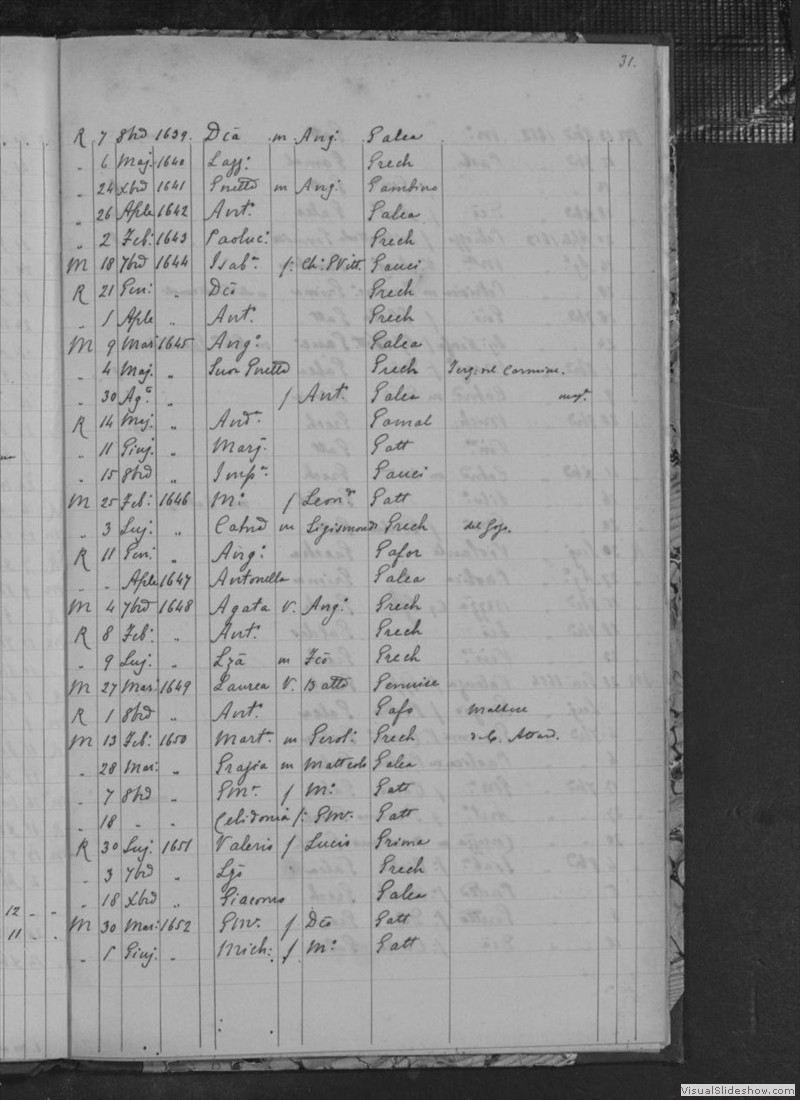 31.
R 7 8bre 1639. Dca m Ang: Galea
„ 6 Maj. 1640 Lazz: Grech
„ 24 Xbre 1641 Gnetta m Ang: Gambino
„ 26 Aple 1642 Ant: Galea
„ 2 Feb: 1643 Paoluc: Grech
M 18 7bre 1644 Isab: f: Ch: Vitt. Gauci
R 21 Gen: „ Dco Grech
„ 1 Aple „ Ant: Grech
M 9 Mar: 1645 Ang: Galea
„ 4 Maj. „ Suor Gnetta Grech Terz: del Carmine.
„ 30 Ag: „ f Ant: Galea
R 14 Maj. „ And: Gamal
„ 11 Giug. „ Marj. Gatt
„ 15 8bre „ Gauci
M 25 Feb: 1646 M: f Leon: Gatt
„ 3 Lug. „ Catna m Sigismondo Grech del Gozo.
R 11 Gen: „ Ang: Gafor
„ - Aple 1647 Antonella Galea
M 4 7bre 1648 Agata V. Ang: Grech
R 8 Feb: „ Ant: Grech
„ 9 Lug. „ Lza m Fco Grech
M 27 Mar: 1649 Laurea V. Batta
R 1 8bre „ Ant: Gafo maltese
M 13 Feb: 1650 Mart: m Girol: Grech d. C. Attard.
„ 28 Mar: „ Grazia m Matteolo Galea
„ 7 8bre „ Gio: f M: Gatt
„ 18 - „ Celidonia f: Gio: Gatt
R 30 Lug. 1651 Valerio f Lucio Grima
„ 3 7bre „ Lzo Grech
„ 18 Xbre „ Giacomo Galea
12 - -
M 30 Mar: 1652 Gio: f Dco Gatt
11 - -
„ 1 Giug. „ Mich: f M: Gatt
VisualSlideshow.com